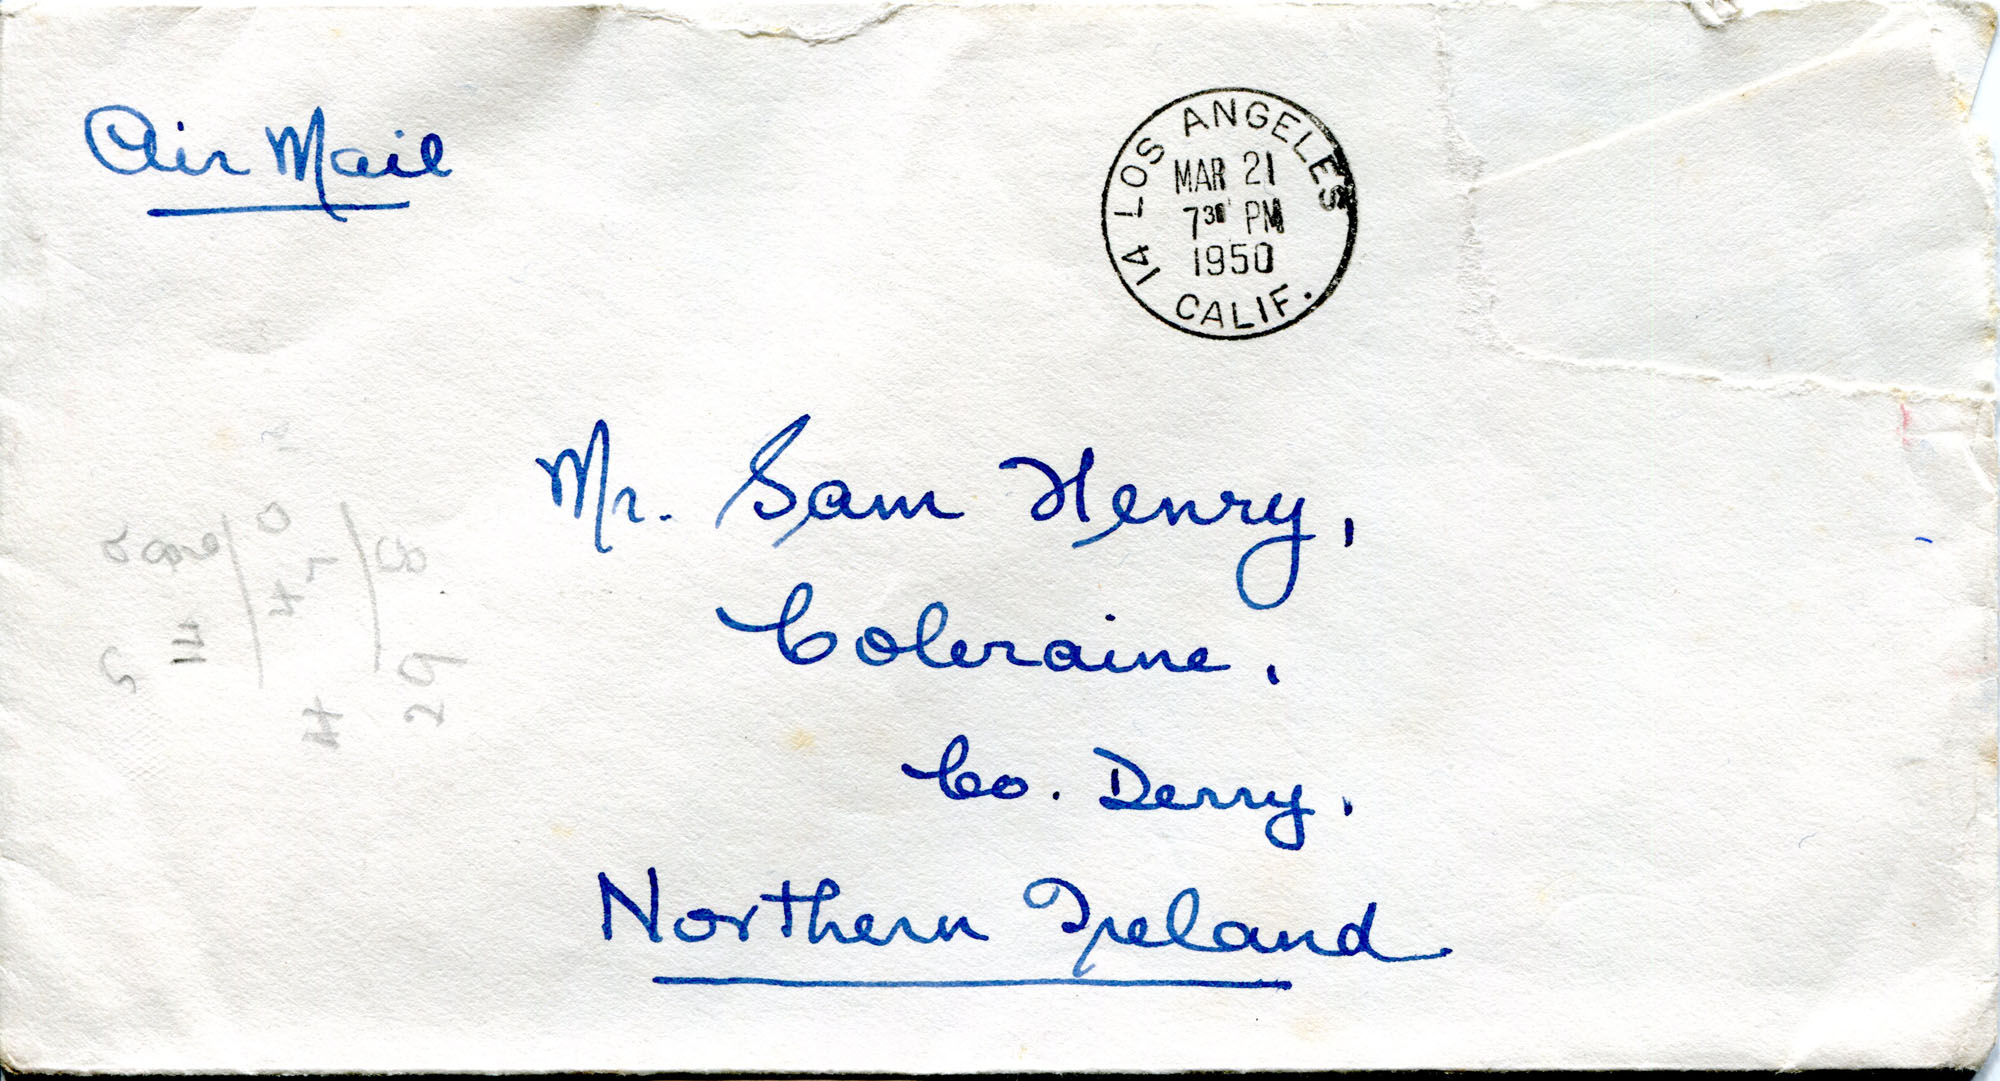 Air Mail
LOS ANGELES 14
MAR 21
7 30 PM
1950
CALIF.
Mr. Sam Henry,
Coleraine.
Co. Derry.
Northern Ireland